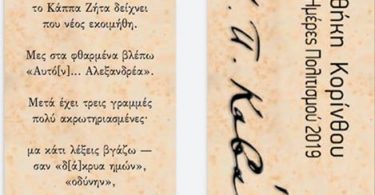 το Κάππα Ζήτα δείχνει
που νέος εκοιμήθη.
Μες στα φθαρμένα βλέπω
«Αυτό[ν]... Αλεξανδρέα».
Μετά έχει τρεις γραμμές
πολύ ακρωτηριασμένες·
μα κάτι λέξεις βγάζω —
σαν «δ[ά]κρυα ημών»,
«οδύνην»,
θήκη Κορίνθου
Ημέρες Πολιτισμού 2019
Π. Καβά